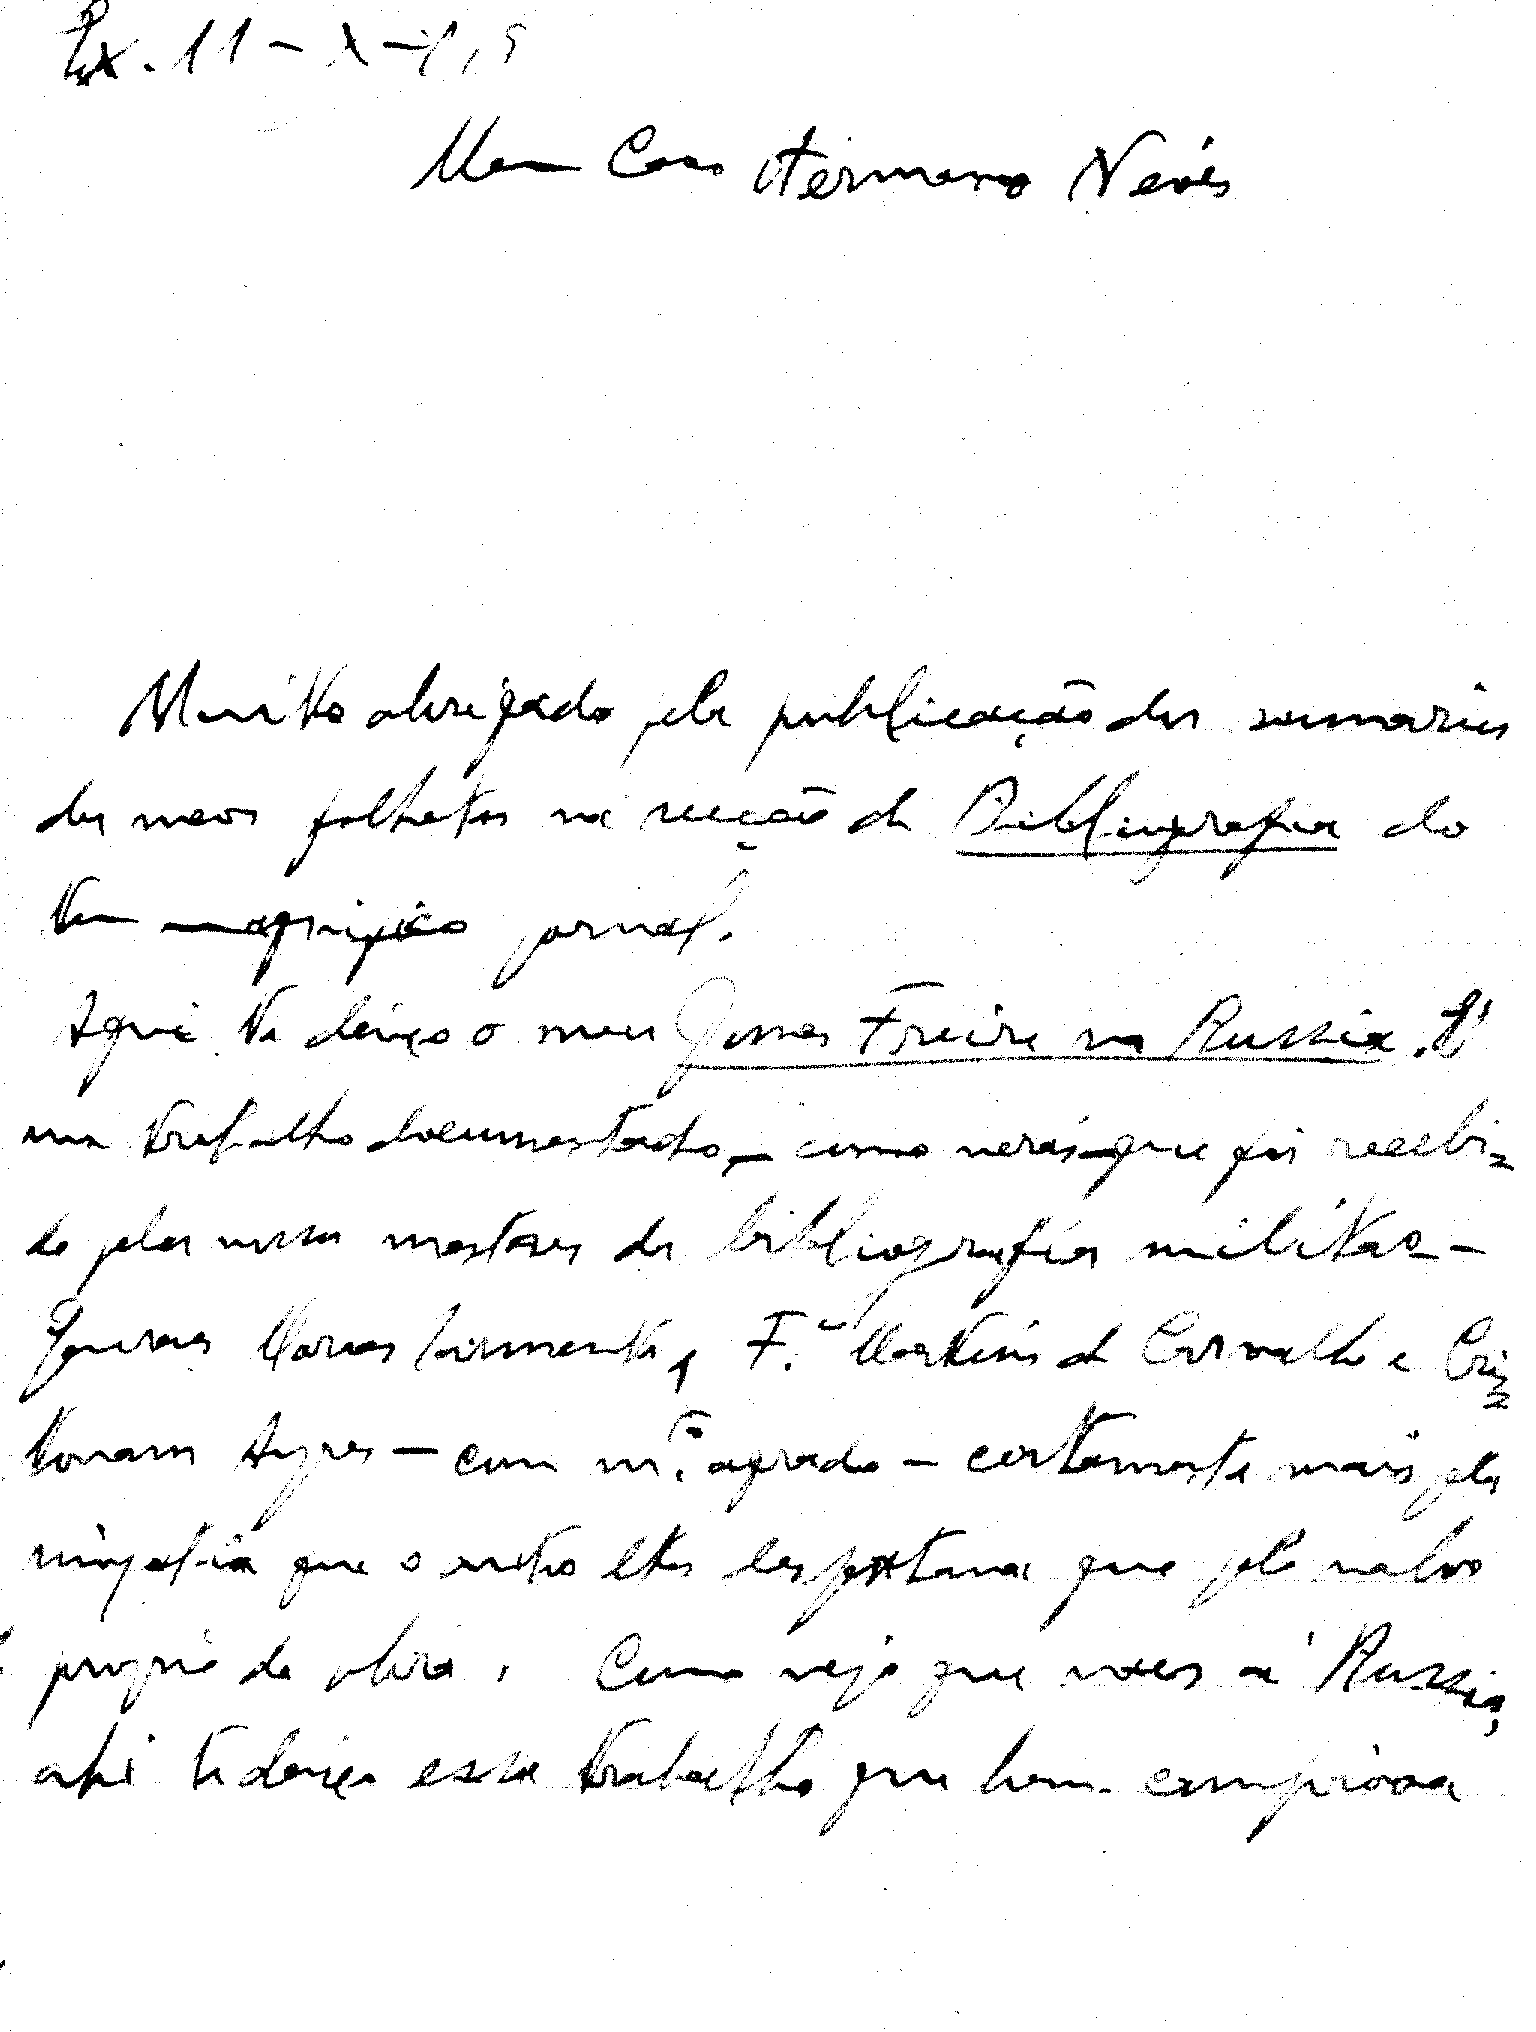 Lx. 11-X-915
Meu Caro Hermano Neves
Muito obrigado pela publicação dos sumarios
dos meus folhetos na secção de Bibliografia do
teu magnifico jornal.
Aqui te deixo o meu Gomes Freire na Russia. É
um trabalho documentado, — como verás que foi recebi-
do pelos nossos mestres da bibliografia militar —
Moraes Sarmento, F.co Martins de Carvalho e Cris-
tovam Ayres — com m.to agrado — certamente mais pela
simpatia que o autor lhes despertava que pelo valor
proprio da obra. Como vejo que vaes á Russia,
ahi te deixo esse trabalho que bem comprova